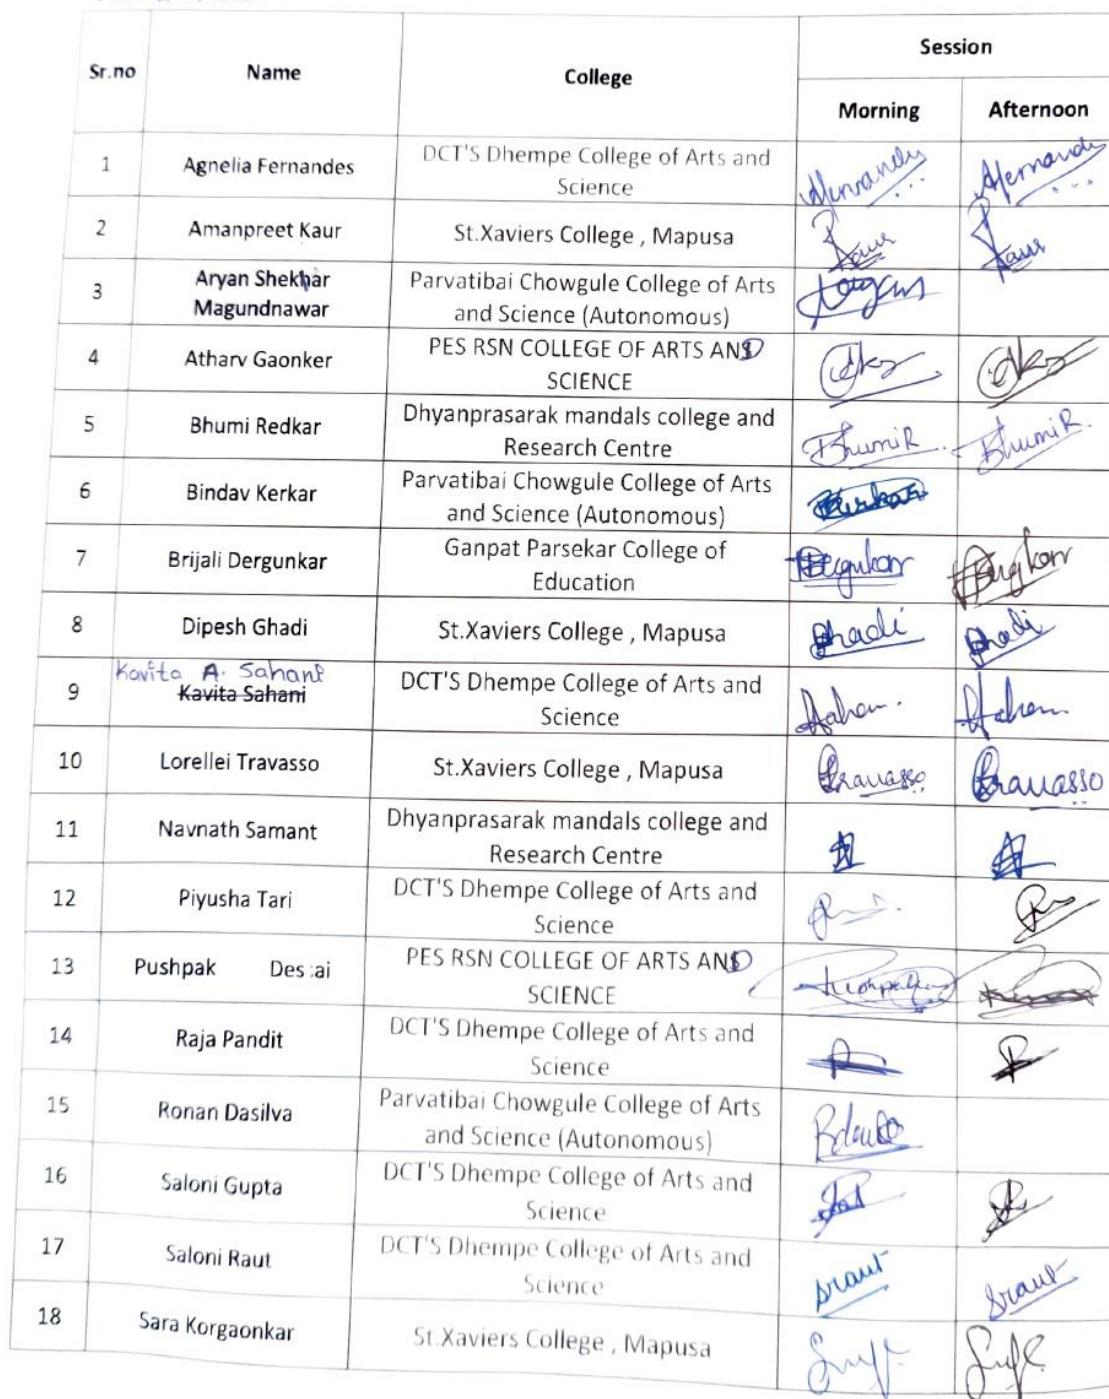 Session
Sr.no Name College
Morning Afternoon
1 Agnelia Fernandes DCT'S Dhempe College of Arts and
Science
2 Amanpreet Kaur St.Xaviers College , Mapusa
Kaur Kaur
3 Aryan Shekhar Parvatibai Chowgule College of Arts
Magundnawar and Science (Autonomous)
4 Atharv Gaonker PES RSN COLLEGE OF ARTS AND
SCIENCE
5 Bhumi Redkar Dhyanprasarak mandals college and
Research Centre BhumiR. BhumiR.
6 Bindav Kerkar Parvatibai Chowgule College of Arts
and Science (Autonomous)
7 Brijali Dergunkar Ganpat Parsekar College of
Education
8 Dipesh Ghadi St.Xaviers College , Mapusa Ghadi Ghadi
Kavita A. Sahani
9 Kavita Sahani DCT'S Dhempe College of Arts and
Science
10 Lorellei Travasso St.Xaviers College , Mapusa Travasso Travasso
11 Navnath Samant Dhyanprasarak mandals college and
Research Centre
12 Piyusha Tari DCT'S Dhempe College of Arts and
Science
13 Pushpak Desai PES RSN COLLEGE OF ARTS AND
SCIENCE
14 Raja Pandit DCT'S Dhempe College of Arts and
Science
15 Ronan Dasilva Parvatibai Chowgule College of Arts
and Science (Autonomous)
16 Saloni Gupta DCT'S Dhempe College of Arts and
Science
17 Saloni Raut DCT'S Dhempe College of Arts and
Science sraut sraut
18 Sara Korgaonkar St.Xaviers College , Mapusa